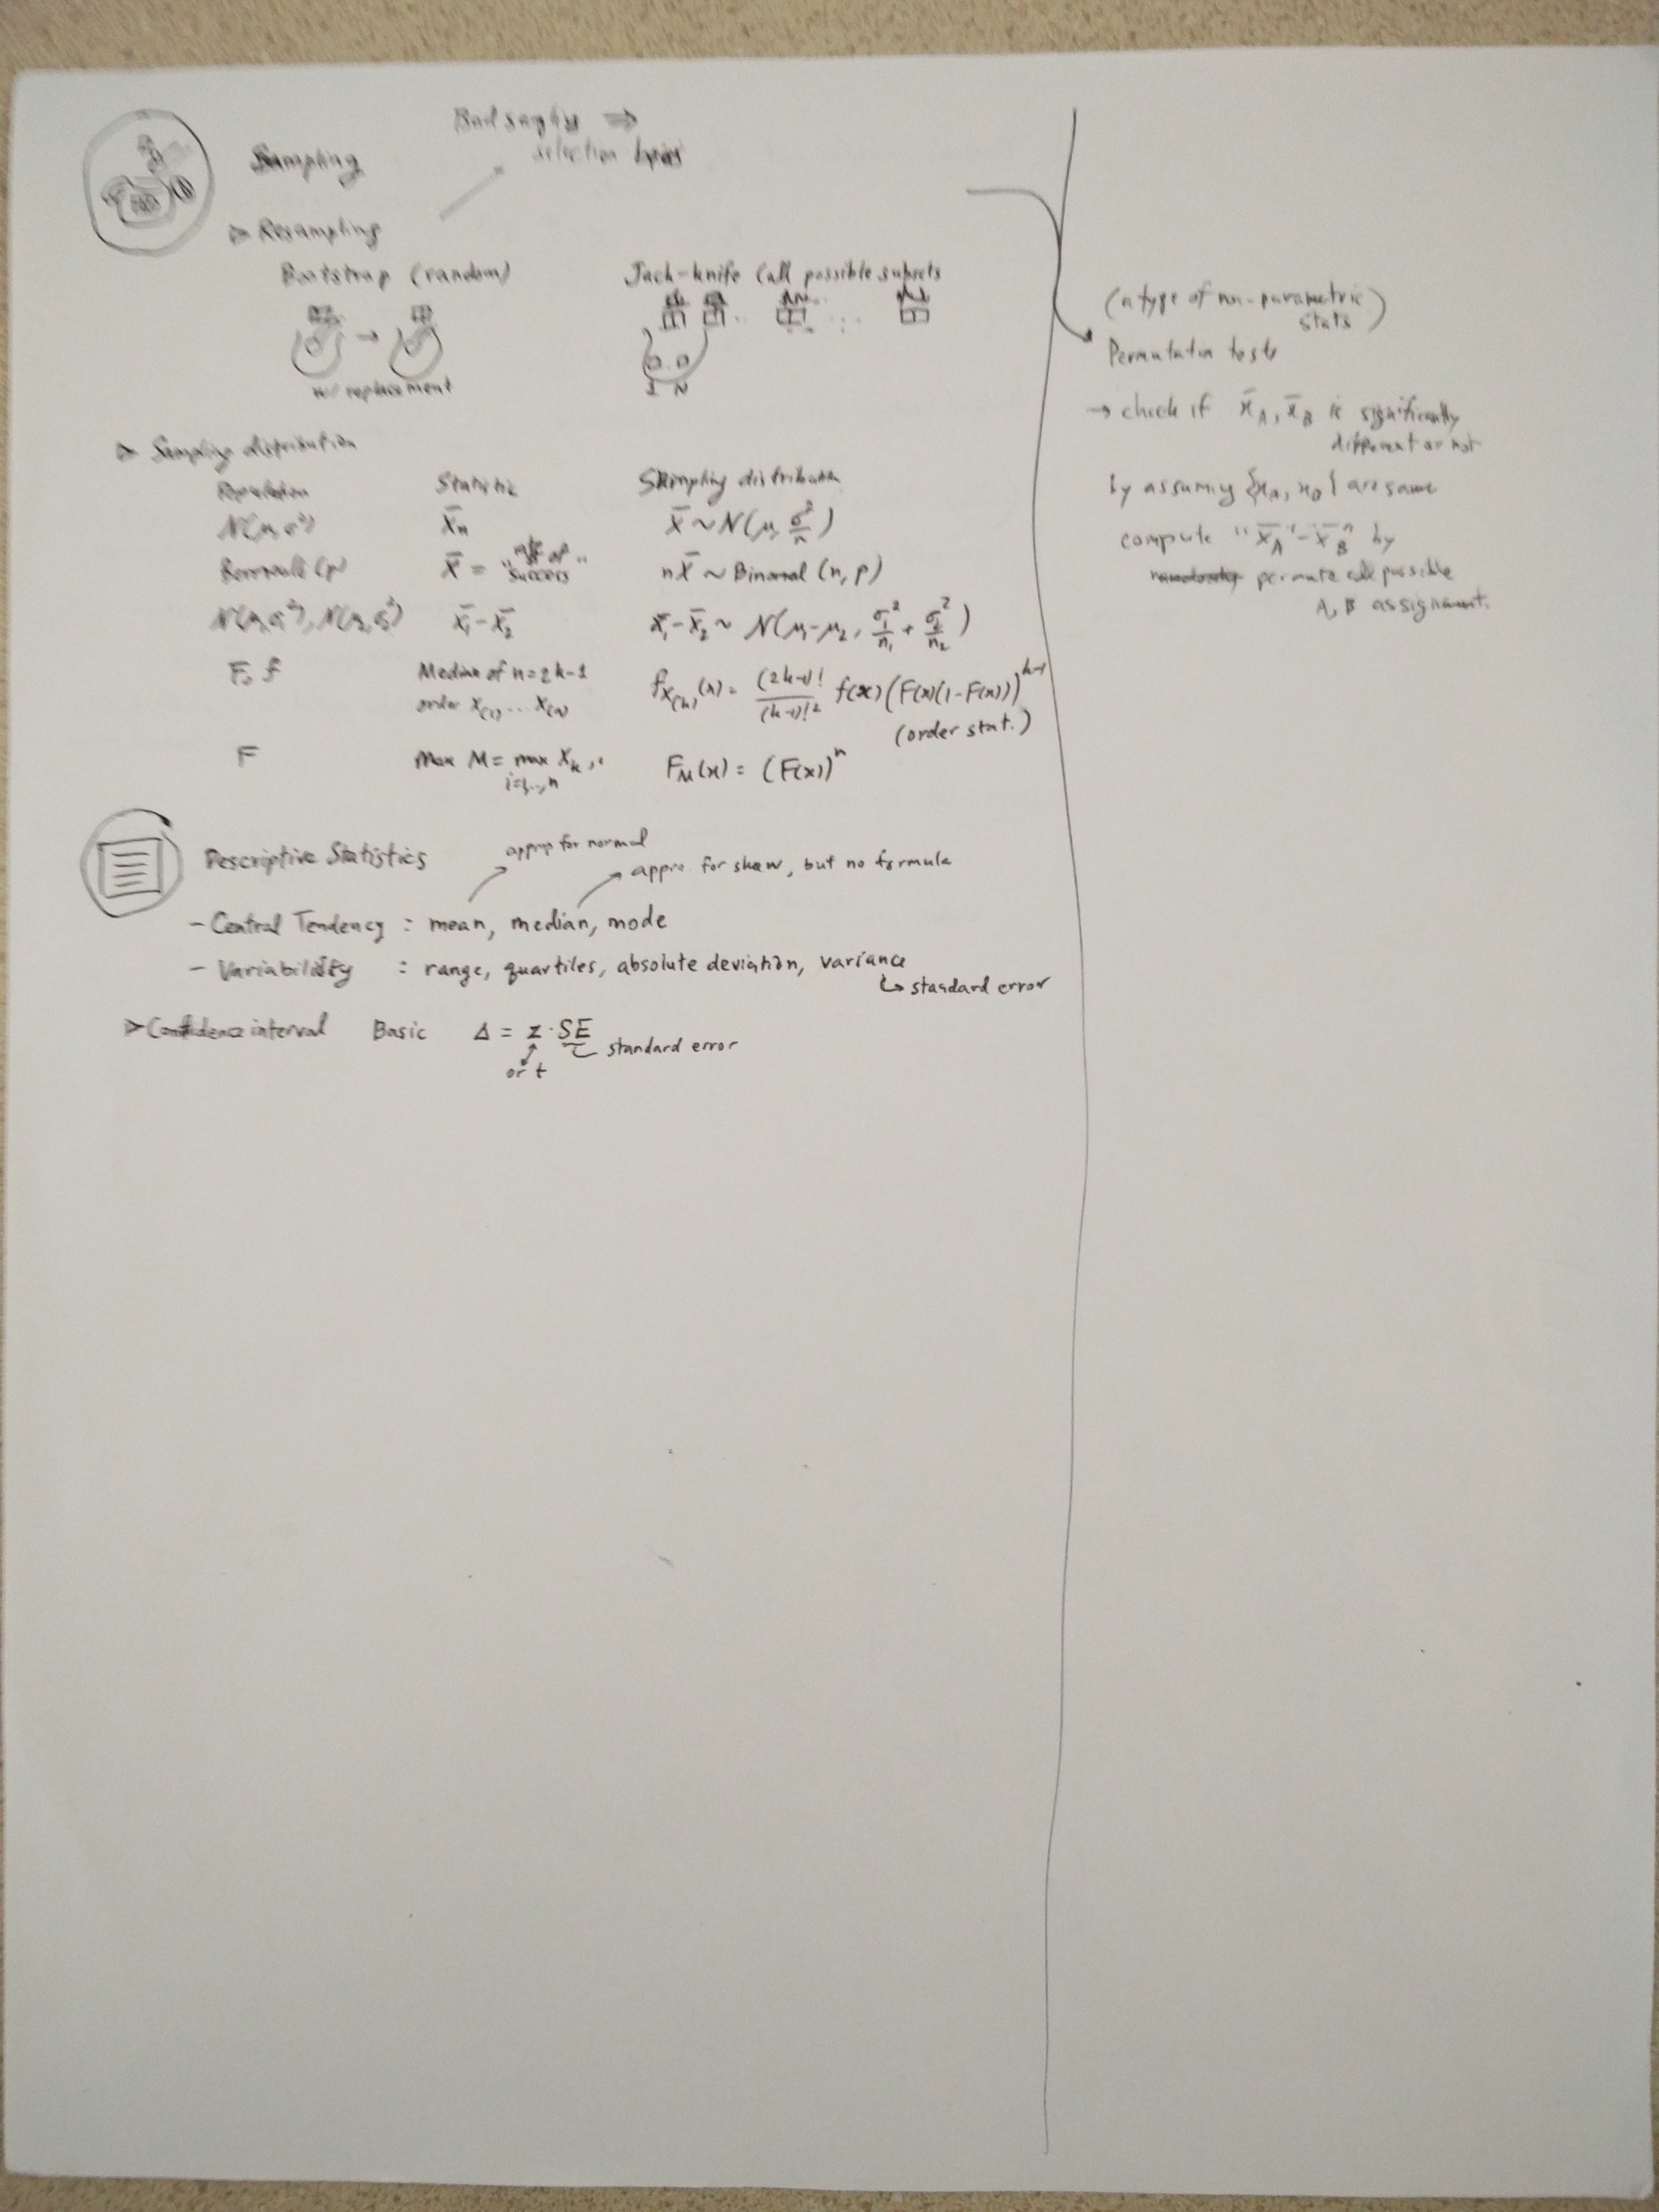 Bad sampling ⇒
selection bias
Sampling
▷ Resampling
Bootstrap (random)
w/ replacement
Jack-knife (all possible subsets
1 N
▷ Sampling distribution
Population Statistic Sampling distribution
N(μ, σ²) X̄ₙ X̄ ~ N(μ, σ²/n)
Bernoulli (p) X̄ = " of success" nX̄ ~ Binomal (n, p)
N(μ₁, σ₁²), N(μ₂, σ₂²) X̄₁ - X̄₂ X̄₁ - X̄₂ ~ N(μ₁-μ₂, σ₁²/n₁ + σ₂²/n₂)
F, f Median of n=2k-1
order X₍₁₎ ... X₍ₙ₎ f_X₍ₖ₎(x) = (2k-1)!/(k-1)!² f(x)(F(x)(1-F(x)))^(k-1)
(order stat.)
F Max M = max Xₖ
i=1,..,n
F_M(x) = (F(x))ⁿ
Descriptive Statistics
approp for normal
appro. for skew, but no formula
- Central Tendency : mean, median, mode
- Variability : range, quartiles, absolute deviation, variance
↳ standard error
▷ Confidence interval Basic Δ = z · SE
standard error
or t
(a type of non-parametric
stats)
Permutation tests
→ check if x̄_A, x̄_B is significantly
different or not
by assuming {x_A, x_B} are same
compute "x̄_A" - "x̄_B" by
permute all possible
A, B assignment.